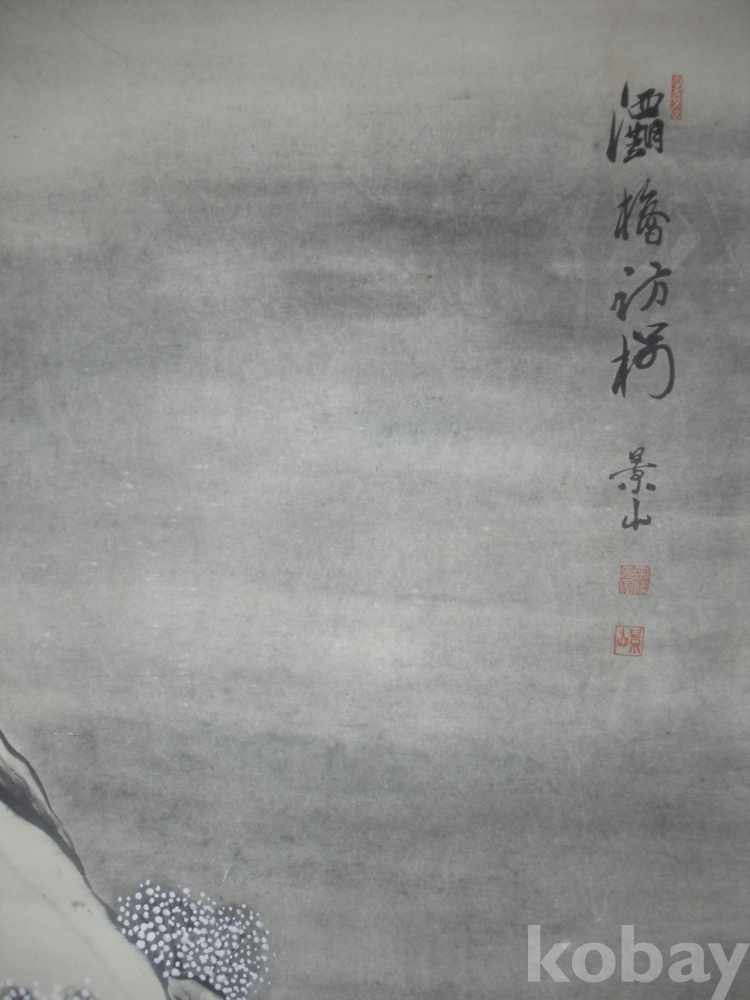 灞橋訪梅
景山
景山
kobay